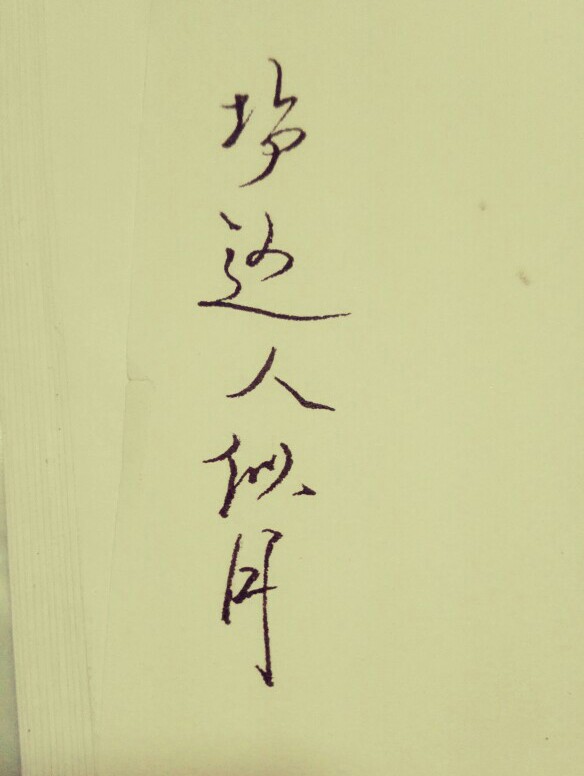 垆边人似月